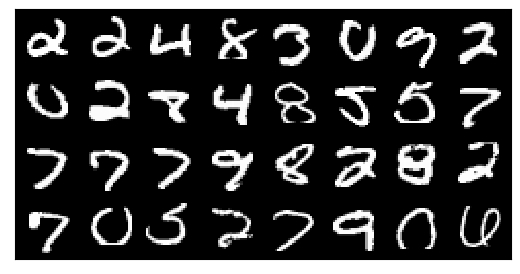 2 2 4 8 3 0 9 2
0 2 8 4 8 5 5 7
7 7 7 9 8 2 8 2
7 0 5 2 7 9 0 6